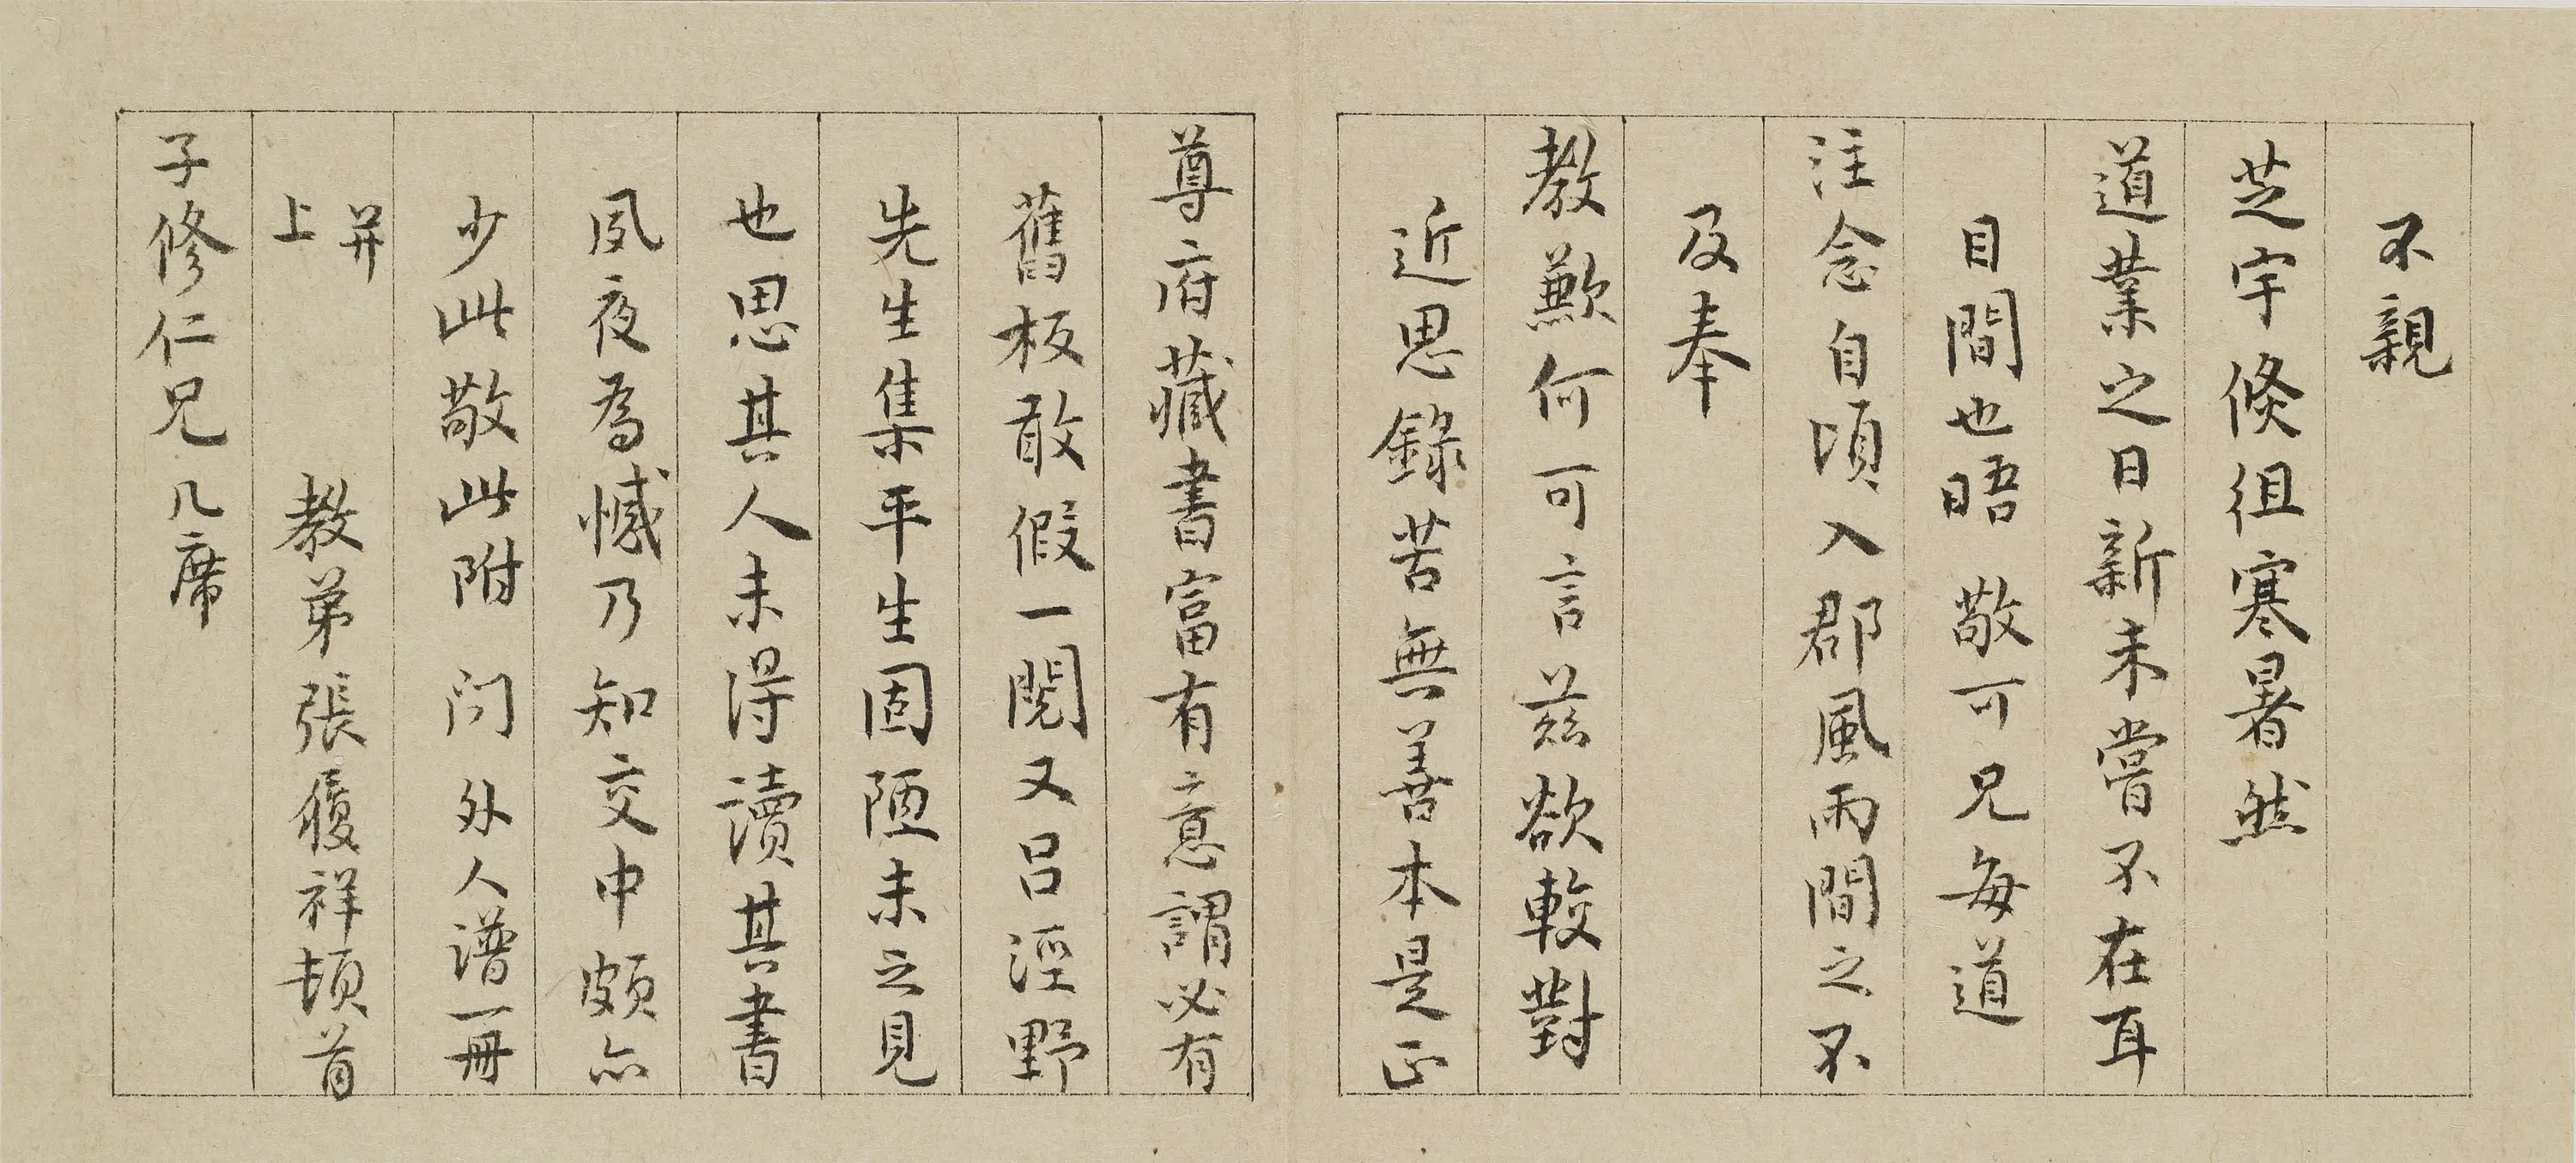 不親
芝宇倐徂寒暑然
道業之日新未嘗不在耳
目間也晤敬可兄每道
注念自頃入郡風雨間之不
及奉
教歉何可言兹欲較對
近思錄苦無善本是正
尊府藏書富有意謂必有
舊板敢假一閱又吕涇野
先生集平生固陋未之見
也思其人未得讀其書
夙夜為憾乃知交中頗亦
少此敬此附问外人譜一冊
并
上 教弟張履祥頓首
子修仁兄几席